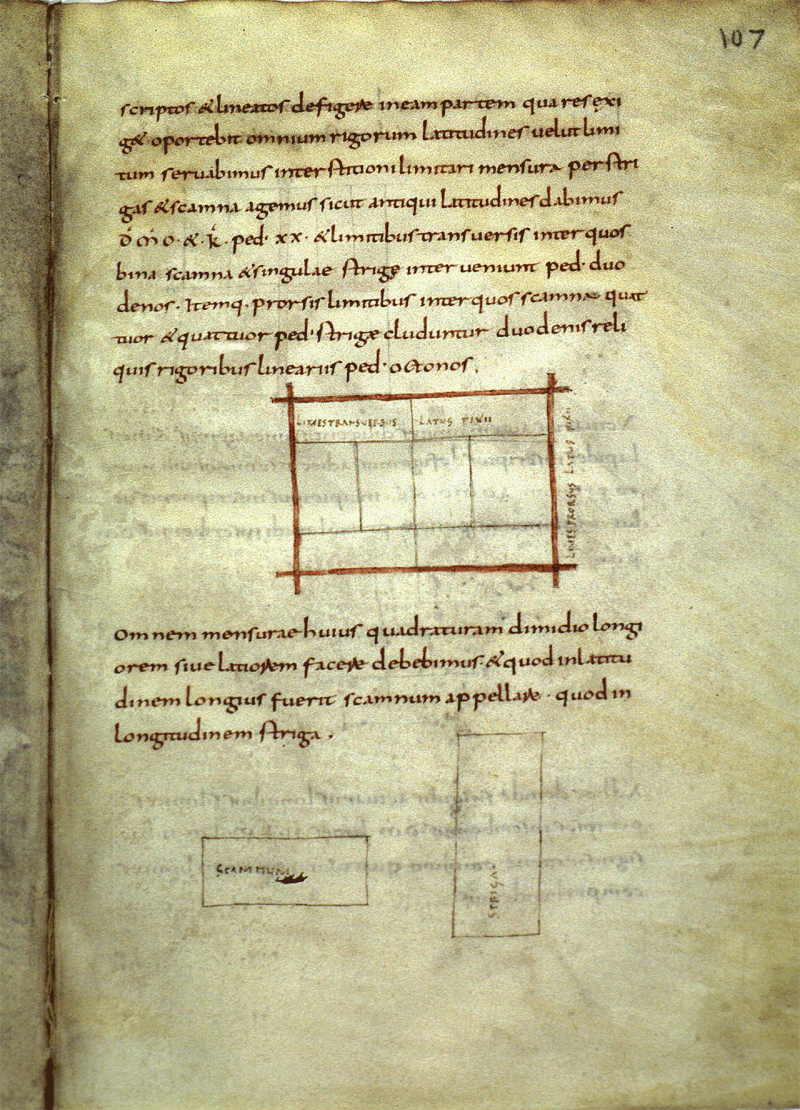 107
scriptos & lineatos defigere in eam partem qua res exi
g& oportebit omnium rigorum latitudines uelut limi
tum seruabimus interstitioni limitari mensura per stri
gas & scamna agemus sicut antiqui latitudines dabimus
ped· xx· & limitibus transuersis inter quos
bina scamna & singulae strige inter ueniunt ped· duo
denos· Itemq· prorsis limitibus inter quos scamna quat
tuor & quattuor ped· strige cluduntur duodenis reli
quis rigoribus linearis ped· octonos.
LIMES TRANSUERSUS LATUS
LIMES PRORSUS LATUS
Omnem mensurae huius quadraturam dimidio longi
orem siue latiorem facere debebimus· & quod in latitu
dinem longius fuerit scamnum appellare· quod in
longitudinem striga.
SCAMNUM
STRIGA·